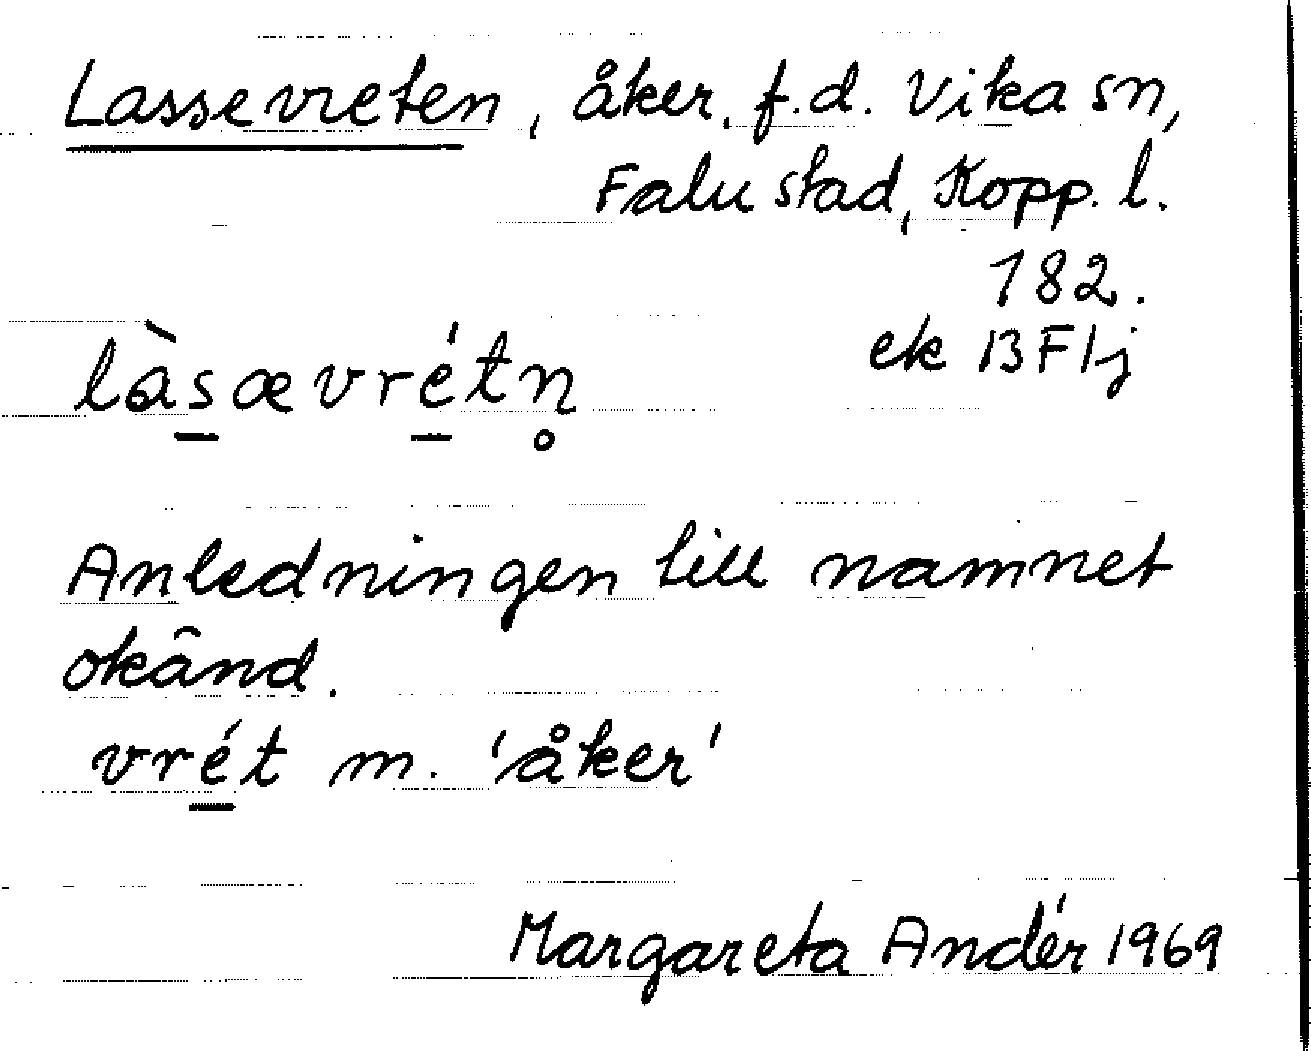 Lassevreten, åker, f.d. Vika sn,
Falu stad, Kopp. l.
182.
ek 13F1j
làs̲ævré̲tn̥
Anledningen till namnet
okänd.
vré̲t m. 'åker'
Margareta Andér 1969